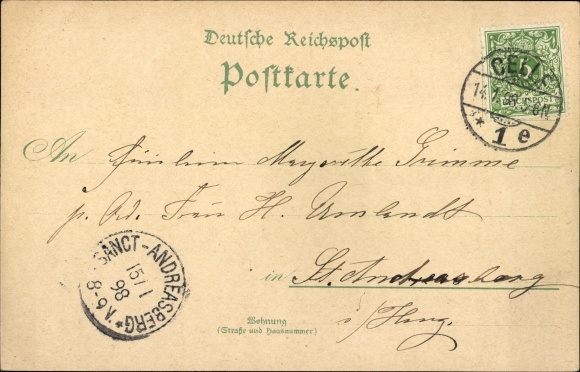 Deutsche Reichspost
Postkarte.
5
REICHSPOST
CELLE
14.
1 e
An Fräulein Margarethe Grimme
p. Ad. Frau H. Umlandt
in St. Andreasberg
i/Harz.
SANCT-ANDREASBERG
15/1
98
8-9V.
Wohnung
(Straße und Hausnummer)